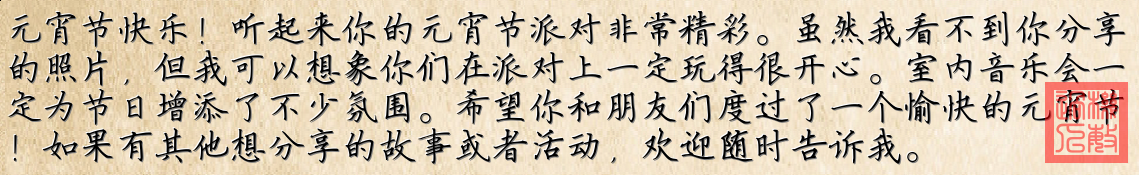 元宵节快乐！听起来你的元宵节派对非常精彩。虽然我看不到你分享
的照片，但我可以想象你们在派对上一定玩得很开心。室内音乐会一
定为节日增添了不少氛围。希望你和朋友们度过了一个愉快的元宵节
！如果有其他想分享的故事或者活动，欢迎随时告诉我。